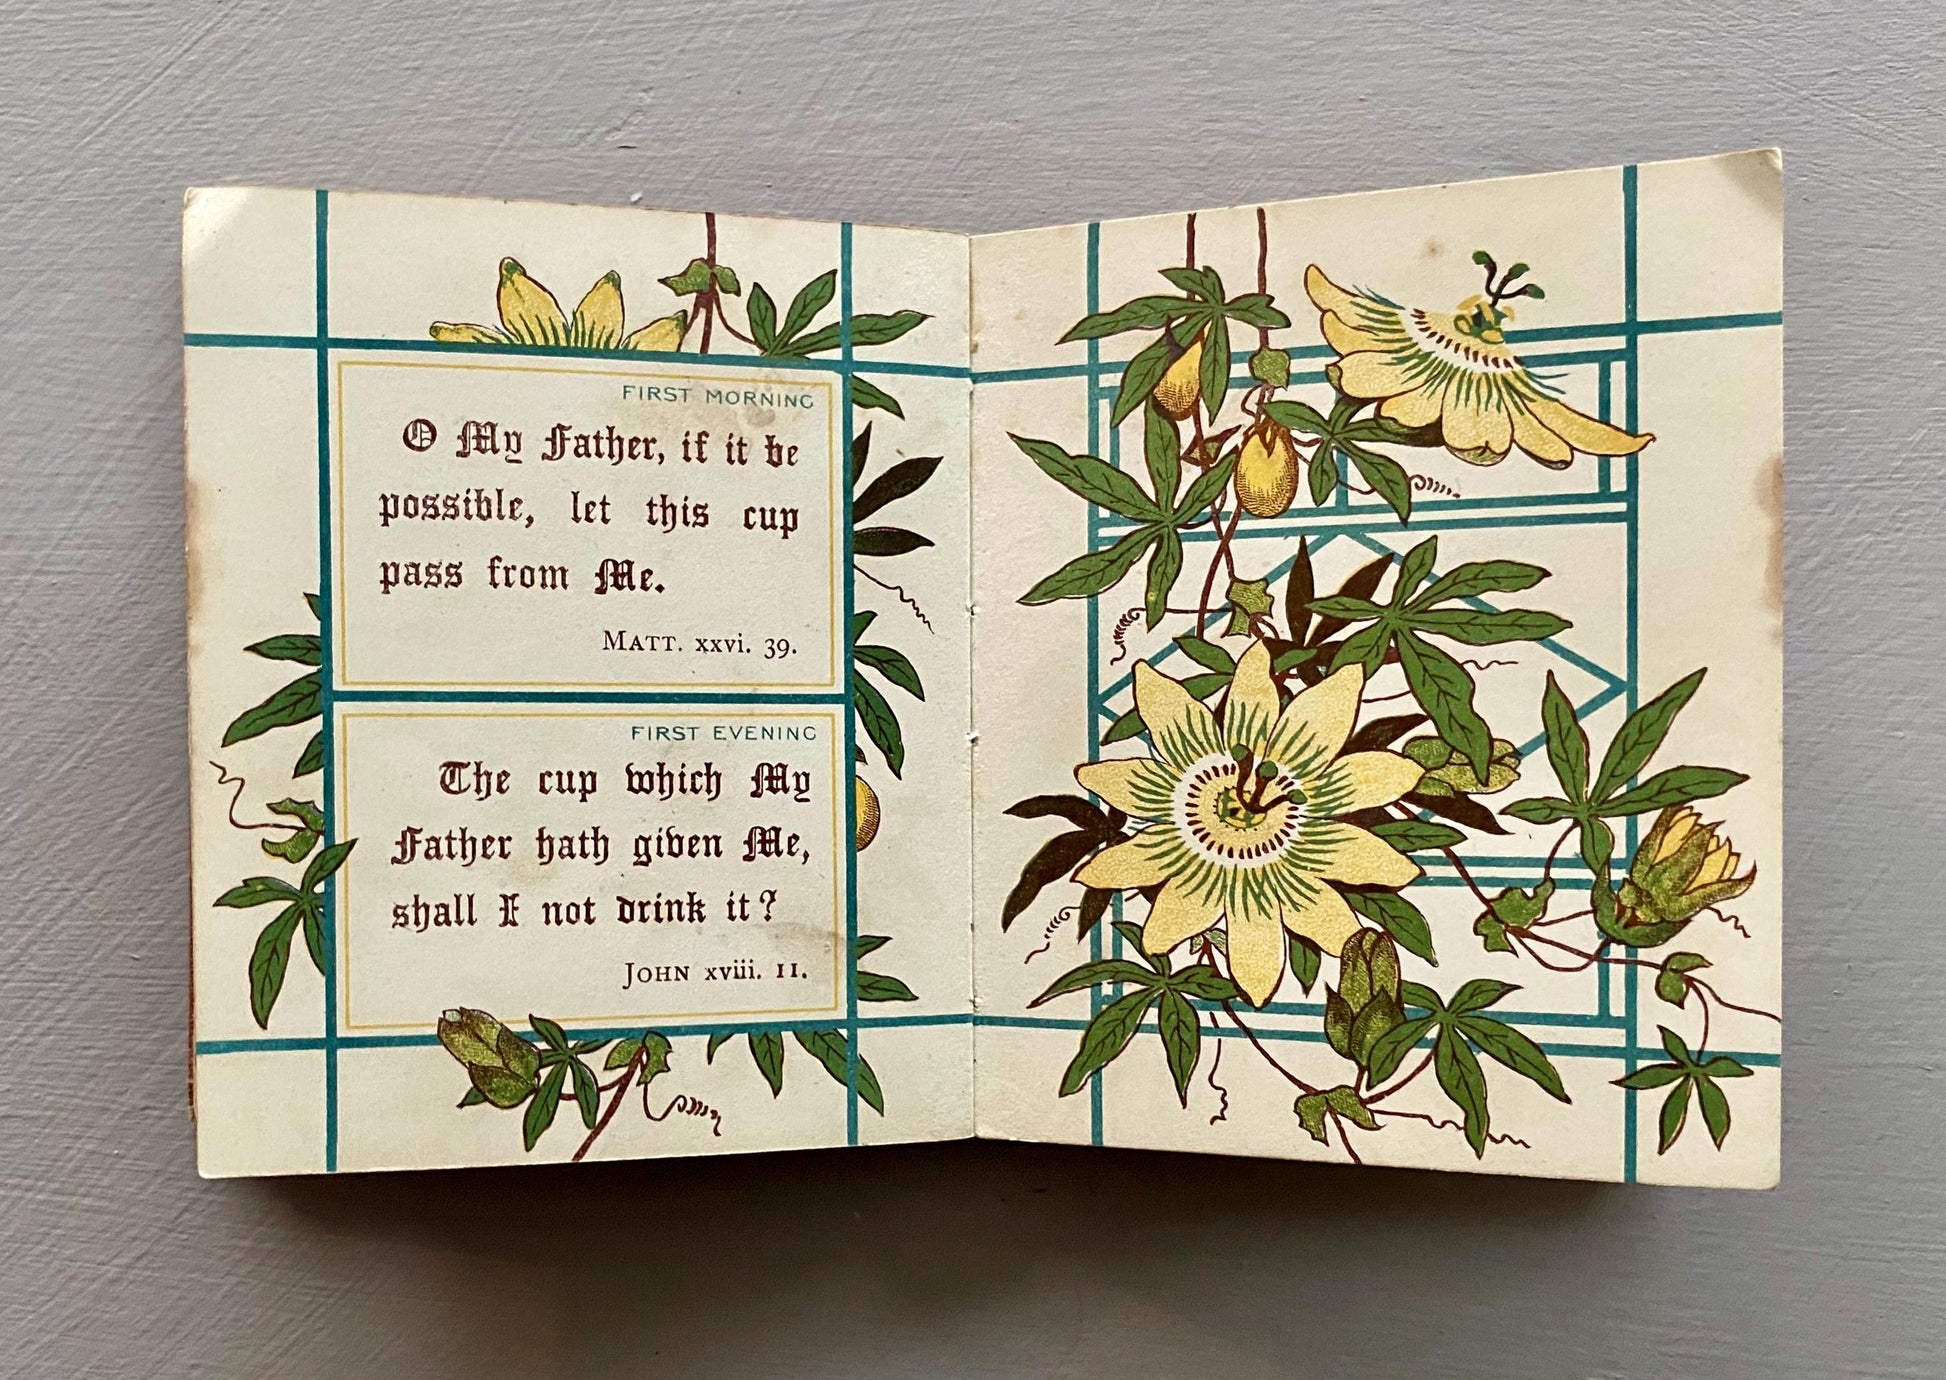 FIRST MORNING
O My Father, if it be
possible, let this cup
pass from Me.
MATT. xxvi. 39.
FIRST EVENING
The cup which My
Father hath given Me,
shall I not drink it?
JOHN xviii. 11.